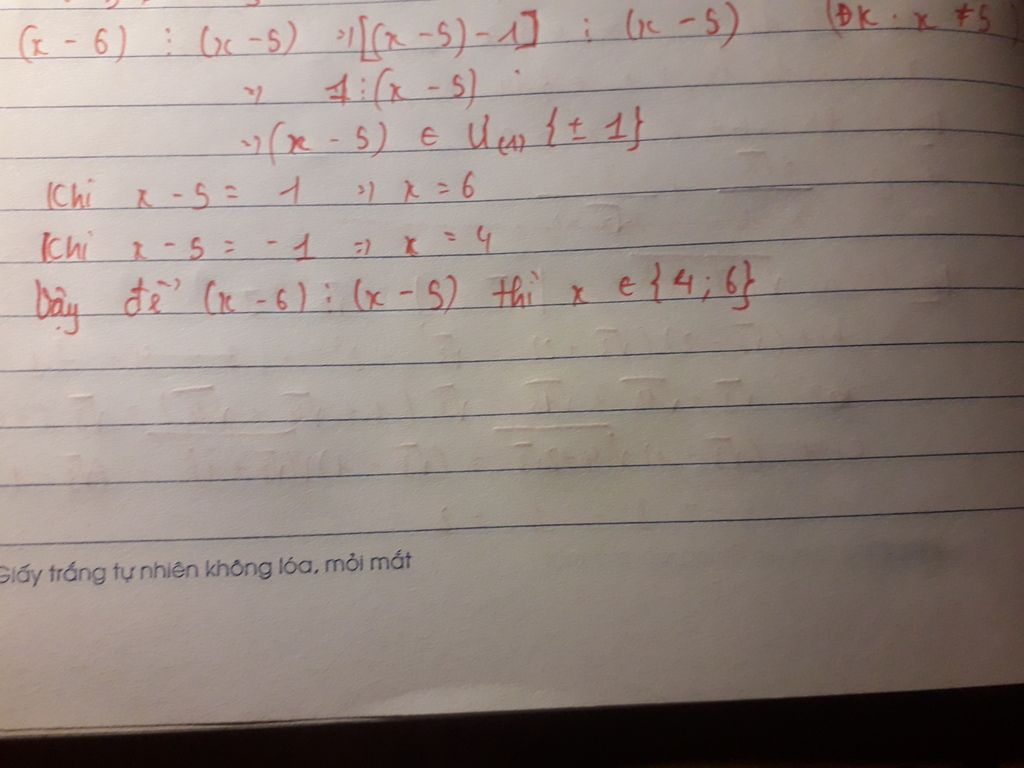 (x - 6) ⋮ (x - 5) => [(x - 5) - 1] ⋮ (x - 5) (ĐK: x ≠ 5)
=> 1 ⋮ (x - 5)
=> (x - 5) ∈ Ư(1) {± 1}
Khi x - 5 = 1 => x = 6
Khi x - 5 = -1 => x = 4
Vậy để (x - 6) ⋮ (x - 5) thì x ∈ {4; 6}
Giấy trắng tự nhiên không lóa, mỏi mắt